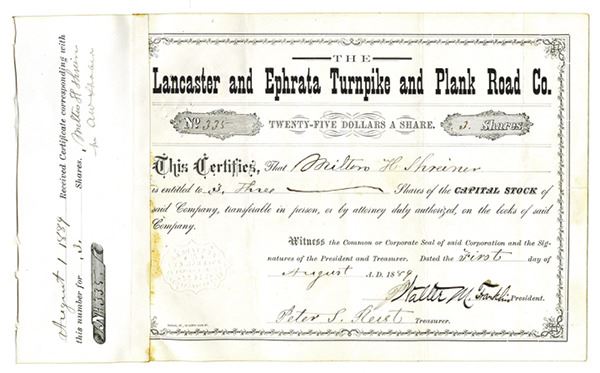 August 1 1889 Received Certificate corresponding with
this number for 3. Shares. Milton H Shreiner
No 335
THE
Lancaster and Ephrata Turnpike and Plank Road Co.
No 335 TWENTY-FIVE DOLLARS A SHARE. 3. Shares
This Certifies, That Milton H. Shreiner
is entitled to 3, Three Shares of the CAPITAL STOCK of
said Company, transferable in person, or by attorney duly authorized, on the books of said
Company.
Witness the Common or Corporate Seal of said Corporation and the Sig-
natures of the President and Treasurer. Dated the First day of
August A.D. 1889
Walter M. Franklin President.
Peter S. Reist Treasurer.